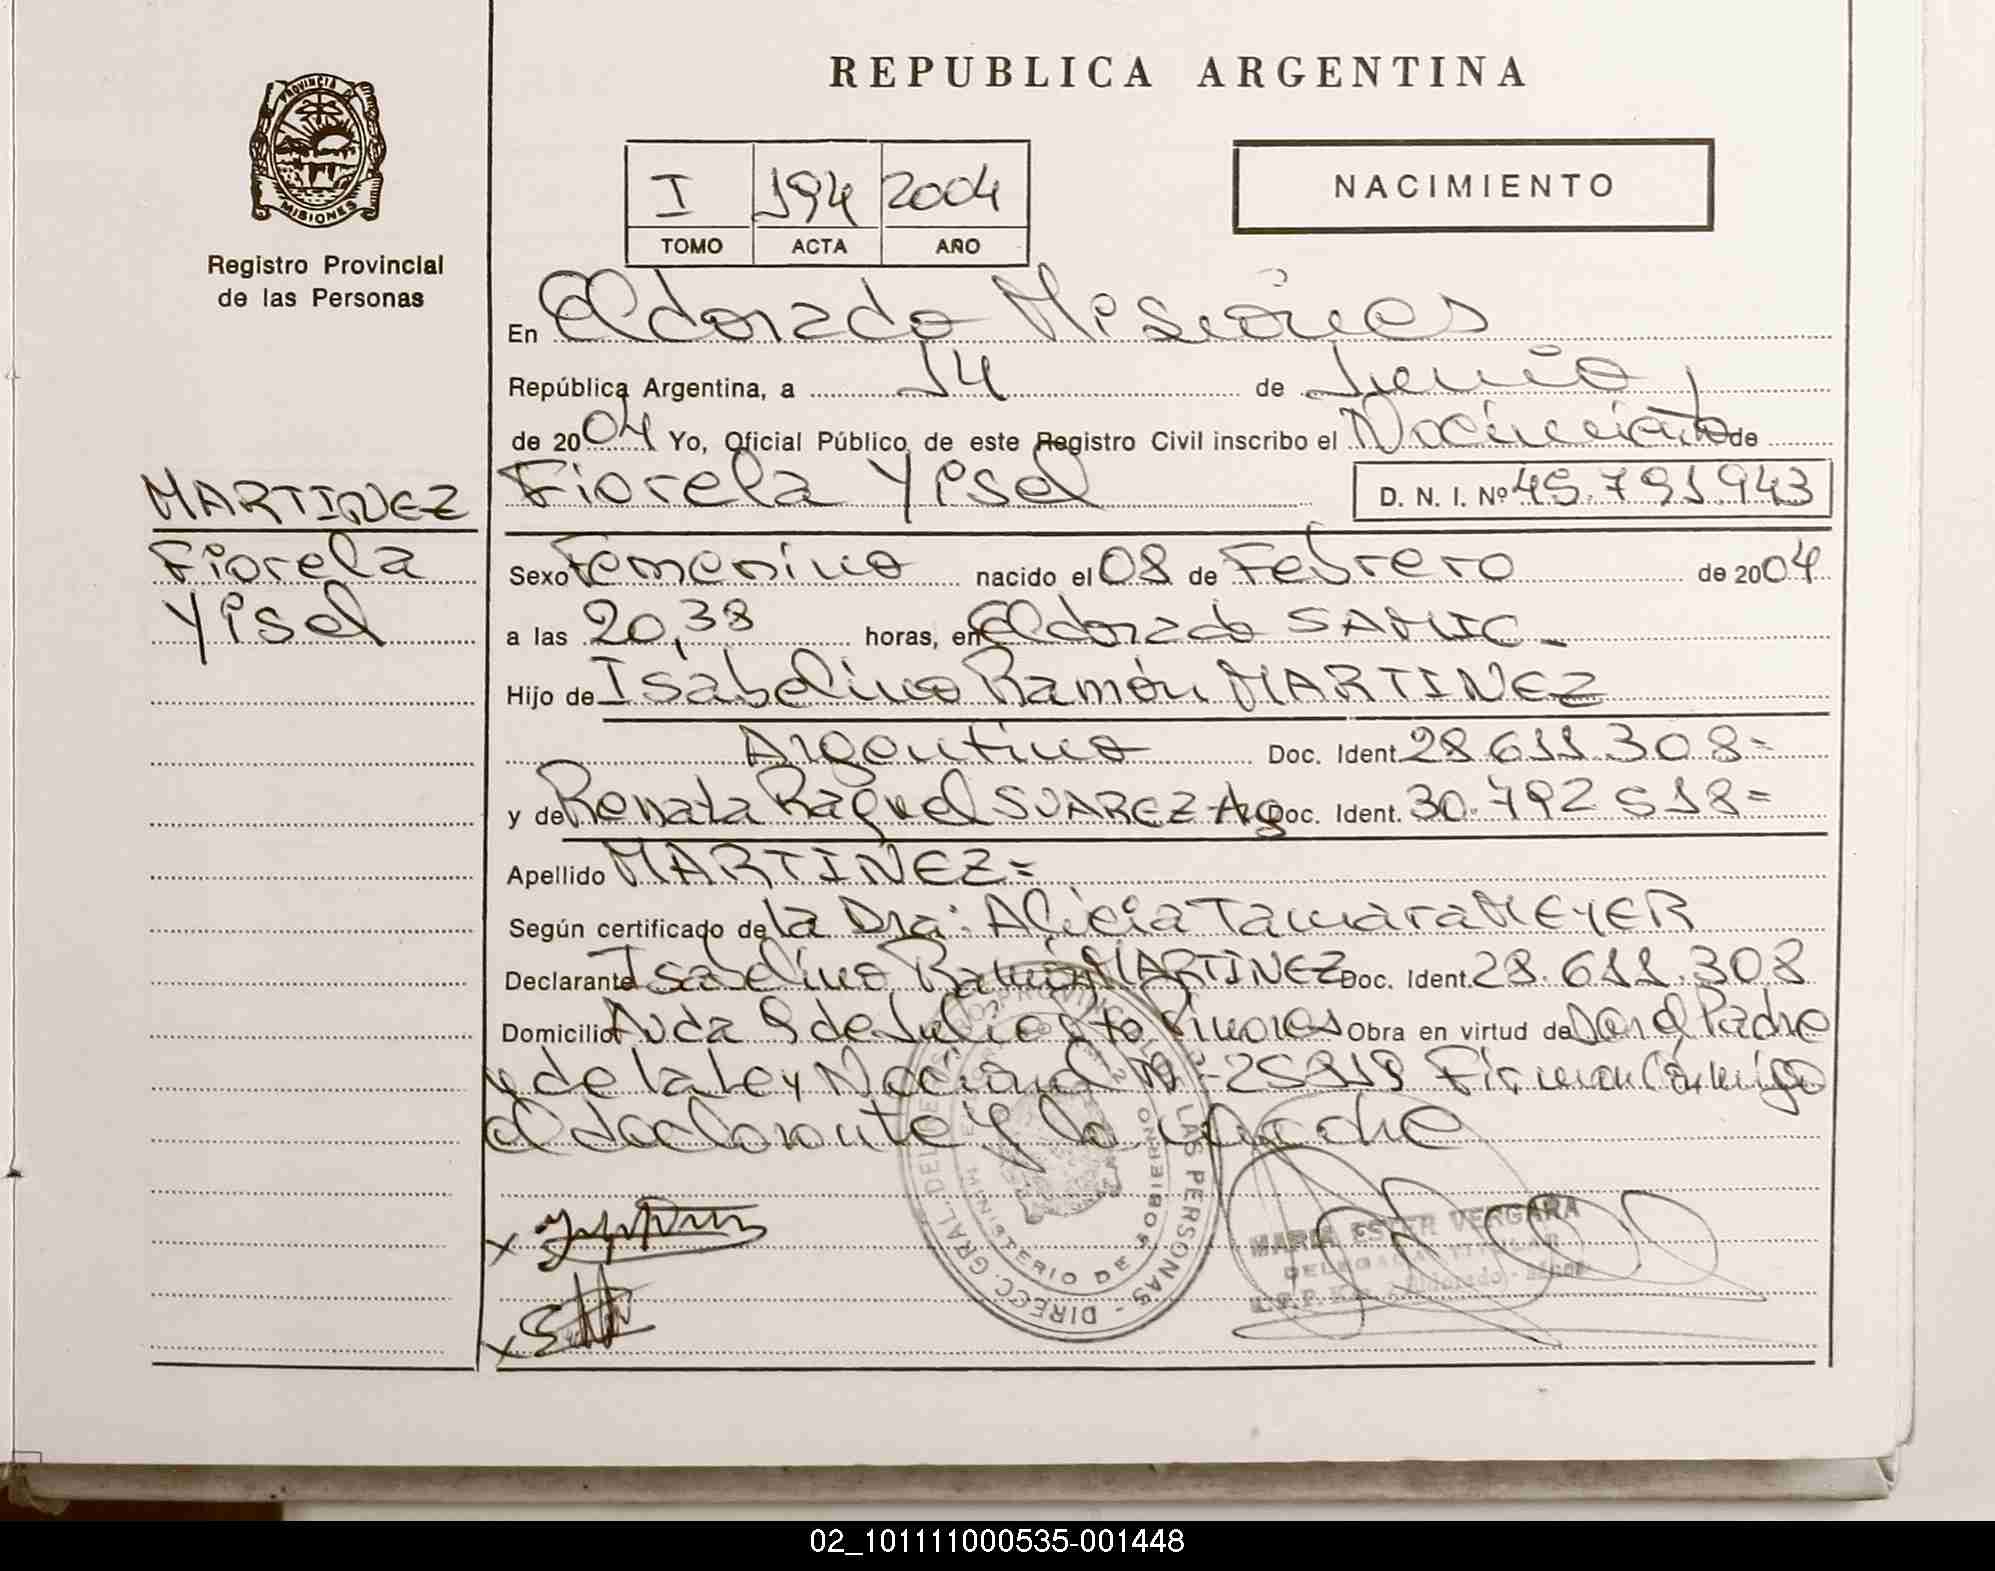 REPUBLICA ARGENTINA
PROVINCIA DE
MISIONES
Registro Provincial
de las Personas
I 194 2004
TOMO ACTA AÑO
NACIMIENTO
En Eldorado Misiones
República Argentina, a 14 de Junio
de 2004 Yo, Oficial Público de este Registro Civil inscribo el Nacimiento de
Fiorela Yisel D. N. I. Nº 45.791943
MARTINEZ
Fiorela
Yisel
Sexo Femenino nacido el 08 de Febrero de 2004
a las 20,38 horas, en Eldorado SAMIC -
Hijo de Isabelino Ramón MARTINEZ
Argentino Doc. Ident. 28.611.308=
y de Renata Raquel SUAREZ Arg Doc. Ident. 30.792518=
Apellido MARTINEZ=
Según certificado de la Dra: Alicia Tamara MEYER
Declarante Isabelino Ramón MARTINEZ Doc. Ident. 28.611.308
Domicilio Avda 9 de Julio Pinares Obra en virtud de Ser el Padre
y de la Ley Nacional Nº 25819 Firman Conmigo
el declarante y la Madre
DIRECC. GRAL. DEL LAS PERSONAS
MINISTERIO DE GOBIERNO
MARIA ESTER VERGARA
DELEGADA TITULAR
Eldorado - Mnes
02_101111000535-001448